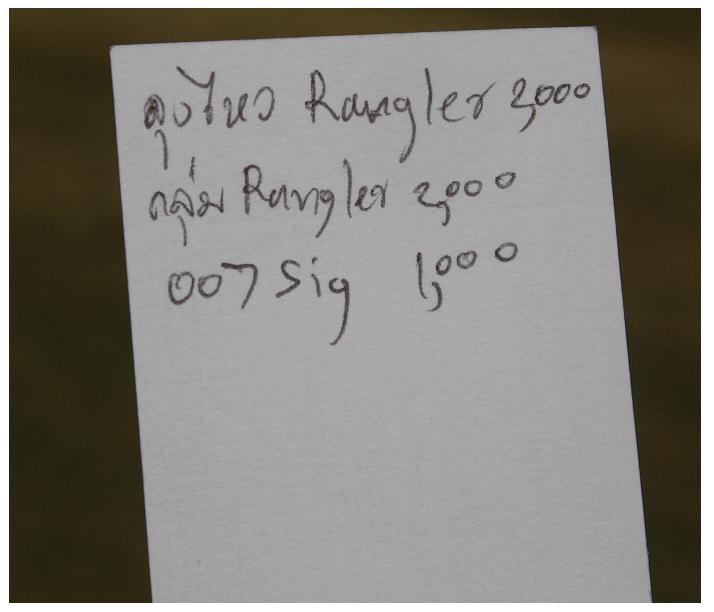 ลุงไหว Rangler 2,000
กลุ่ม Rangler 2,000
007 Sig 1,000